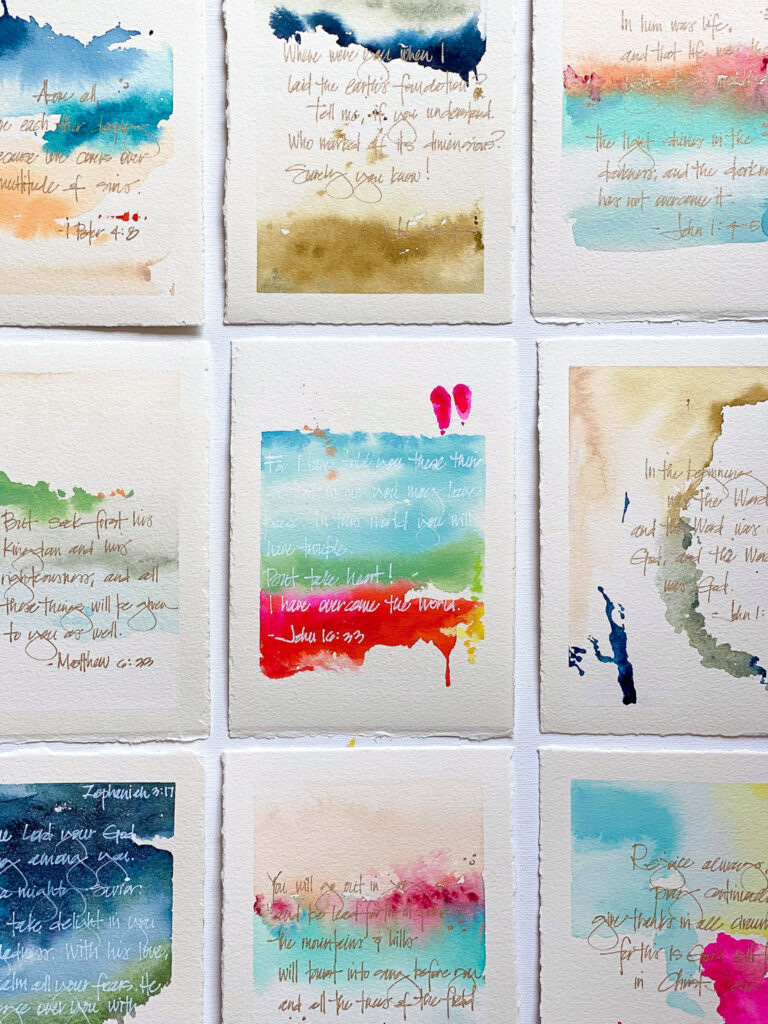 Above all
each other deeply,
because love covers over
multitude of sins.
-1 Peter 4:8
Where were you when I
laid the earth's foundation?
Tell me, if you understand.
Who marked off its dimensions?
Surely you know!
In him was life,
and that life was the
light of all mankind
the light shines in the
darkness, and the darkness
has not overcome it.
- John 1:4-5
But seek first his
Kingdom and his
righteousness, and all
these things will be given
to you as well.
-Matthew 6:33
For I have told you these things
that in me you may have
peace. In this world you will
have trouble.
But take heart!
I have overcome the world.
- John 16:33
In the beginning
was the Word
and the Word was
God, and the Word
was God.
- John 1:
Zephaniah 3:17
Lord your God
among you.
a mighty savior.
take delight in you
With his love,
calm all your fears. He
over you with
You will go out in joy
and be lead forth in peace
the mountains & hills
will burst into song before you,
and all the trees of the field
Rejoice always,
pray continually
give thanks in all
for this is God's will for
in Christ Jesus